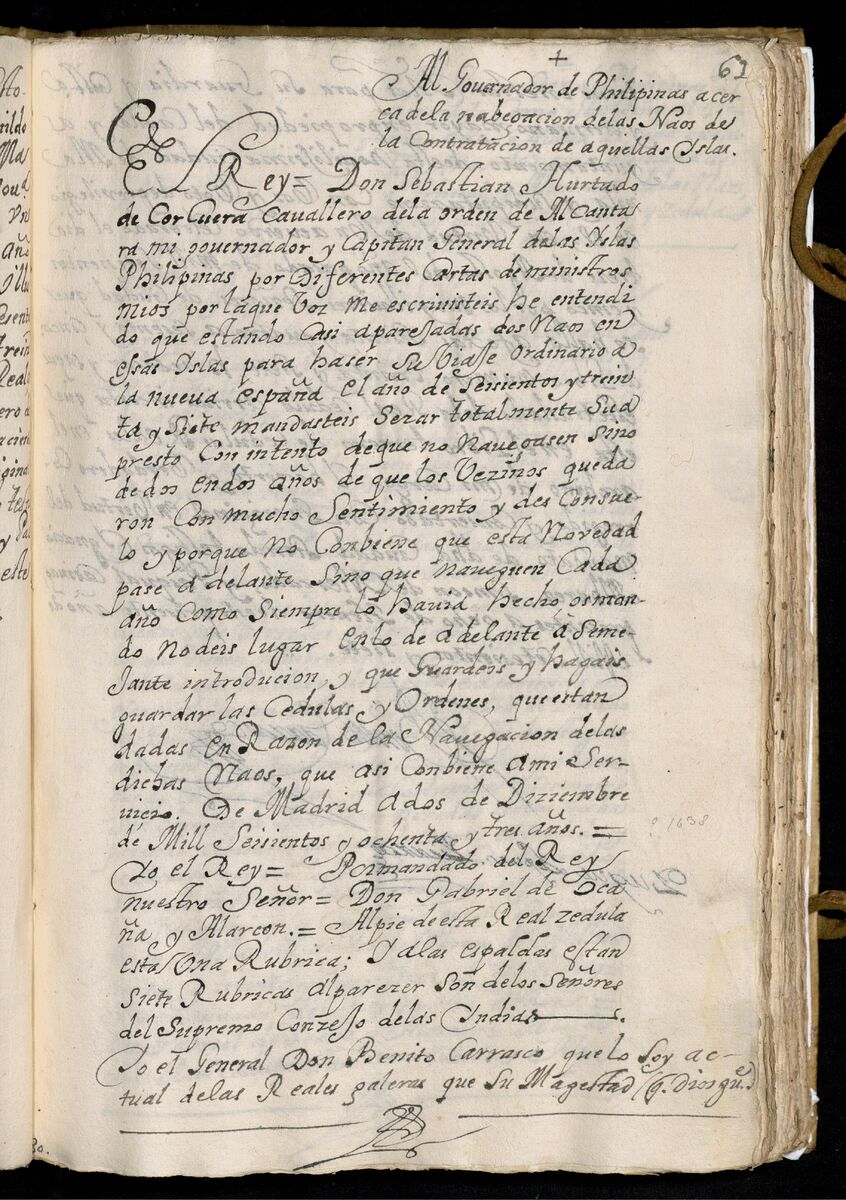 +
61
Al Governador de Philipinas acer
ca dela nabegacion delas Naos de
la Contratacion de aquellas Yslas.
El Rey = Don Sebastian Hurtado
de Corcuera Cavallero dela orden de Alcanta
ra mi governador y Capitan General delas Yslas
Philipinas por Diferentes Cartas de ministros
mios por laque Voz me escrivisteis he entendi
do que estando Casi aparejadas dos Naos en
essas Yslas para haser su Viaje ordinario a
la nueva España el año de Seisientos y trein
ta y Siete mandasteis Sezar totalmente Su a
presto Con intento de que no Navegasen Sino
de dos en dos años de que los Vezinos queda
ron Con mucho Sentimiento y des Consue-
lo y porque No Conbiene que esta Novedad
pase adelante Sino que naveguen Cada
año Como Siempre lo havia hecho os man-
do No deis lugar en lo de adelante a Seme-
jante introducion, y que Guardeis y hagais
guardar las Cedulas y Ordenes, que estan
dadas en Razon de la Navegacion delas
dichas Naos, que asi Conbiene ami Ser-
vicio. De Madrid a dos de Diziembre
de Mill Seisientos y ochenta y tres años. =
? 1638
Yo el Rey = Por mandado del Rey
nuestro Señor = Don Gabriel de Oca
ña y Alarcon. = Al pie de esta Real zedula
esta Una Rubrica; Y a las espaldas estan
Siete Rubricas al parezer Son delos Señores
del Supremo Conzejo delas Yndias.
Yo el General Don Benito Carrasco que lo Soy ac-
tual delas Reales galeras que Su Magestad (q. Dios gue.)